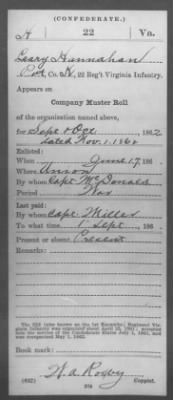 (CONFEDERATE.)
H 22 Va.
Leary Hannahan
Pvt, Co. K, 22 Reg't Virginia Infantry.
Appears on
Company Muster Roll
of the organization named above,
for Sept & Dec, 1862
dated Nov. 1, 1862
Enlisted:
When June 17, 186
Where Union
By whom Capt McDonald
Period War
Last paid:
By whom Capt. Miller
To what time 1 Sept, 186
Present or absent Present
Remarks:
The 22d (also known as the 1st Kanawha) Regiment Virginia Infantry was
Book mark:
(642) W. A. Rogby Copyist.